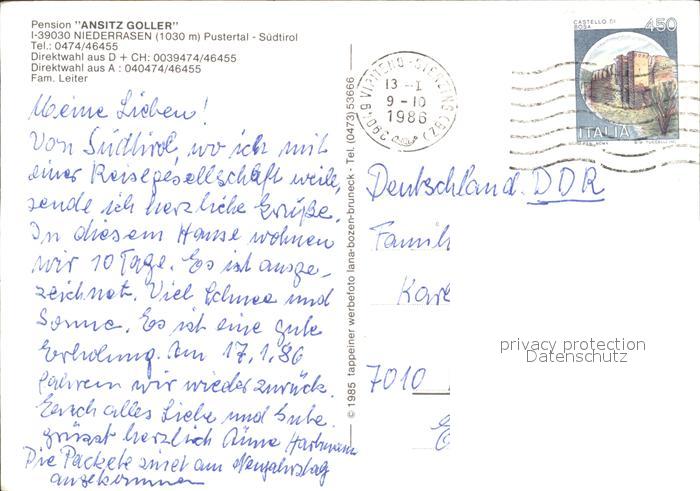 Pension "ANSITZ GOLLER"
I-39030 NIEDERRASEN (1030 m) Pustertal - Südtirol
Tel.: 0474/46455
Direktwahl aus D + CH: 0039474/46455
Direktwahl aus A : 040474/46455
Fam. Leiter
Meine Lieben!
Von Südtirol, wo ich mit
einer Reisegesellschaft weile,
sende ich herzliche Grüße.
In diesem Hause wohnen
wir 10 Tage. Es ist ausge-
zeichnet. Viel Schnee und
Sonne. Es ist eine gute
Erholung. Am 17.1.86
fahren wir wieder zurück.
Euch alles Liebe und Gute.
grüsst herzlich Hartmann
Die Packete sind am Neujahrstag
angekommen
© 1985 tappeiner werbefoto lana-bozen-bruneck - Tel. (0473) 53666
39049 VIPITENO-STERZING (BZ)
13 -1
9-10
1986
CASTELLO DI
BOSA
450
ITALIA
Deutschland. DDR
Famil
Kar
7010
privacy protection
Datenschutz